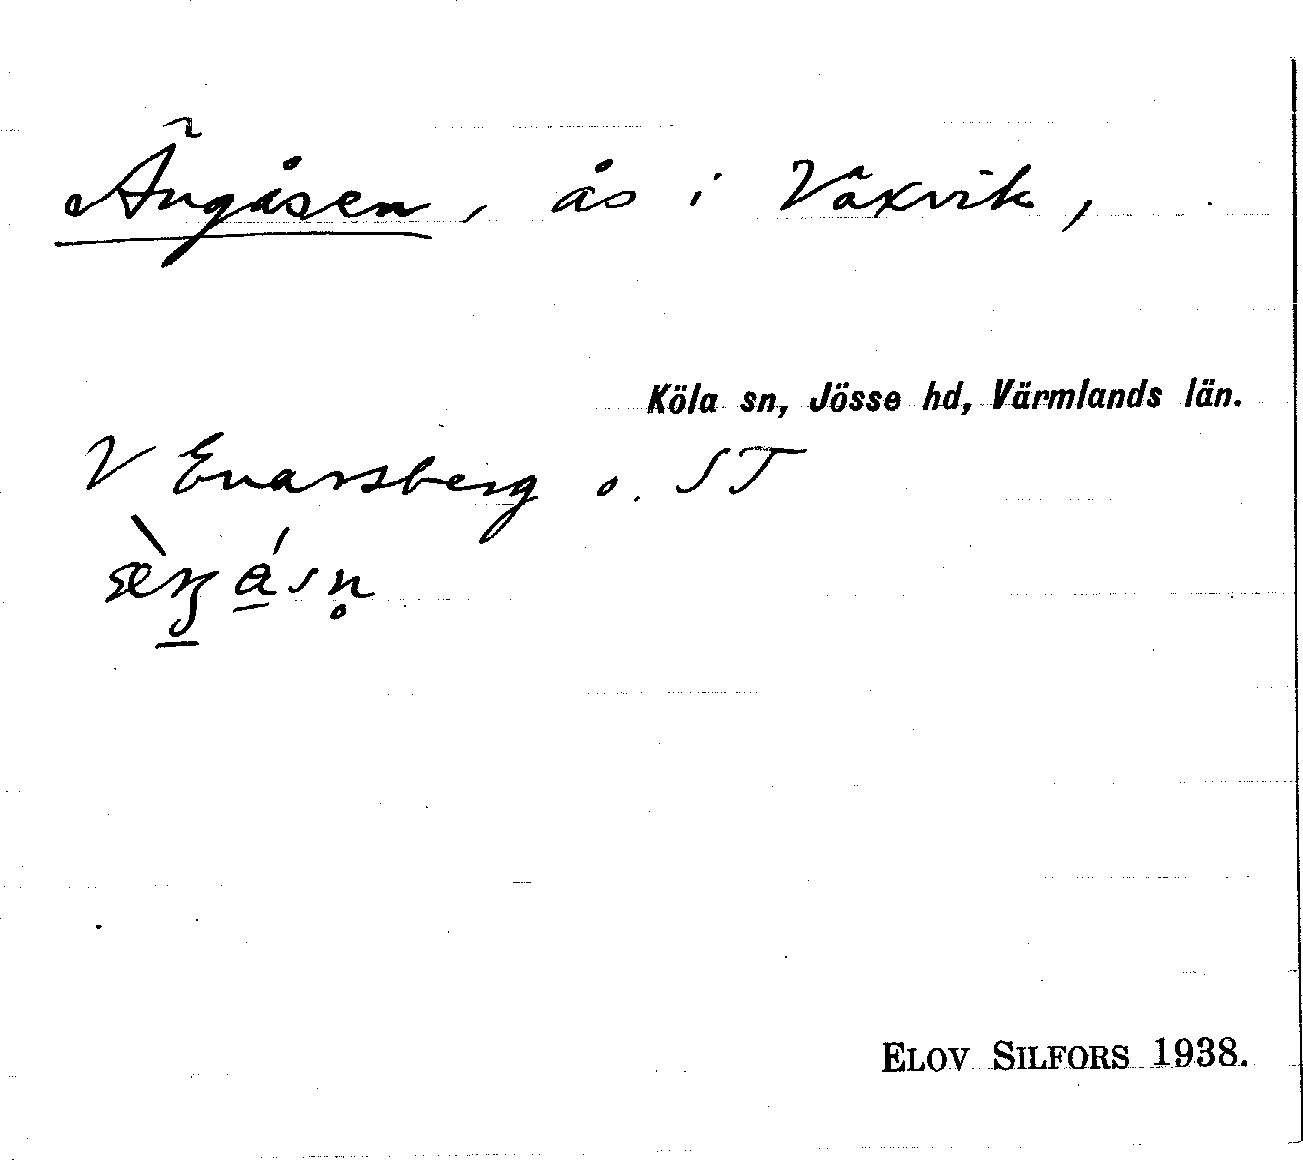 Ängåsen, ås i Växvik,
Köla sn, Jösse hd, Värmlands län.
V Evarsberg o. ST
ELOV SILFORS 1938.